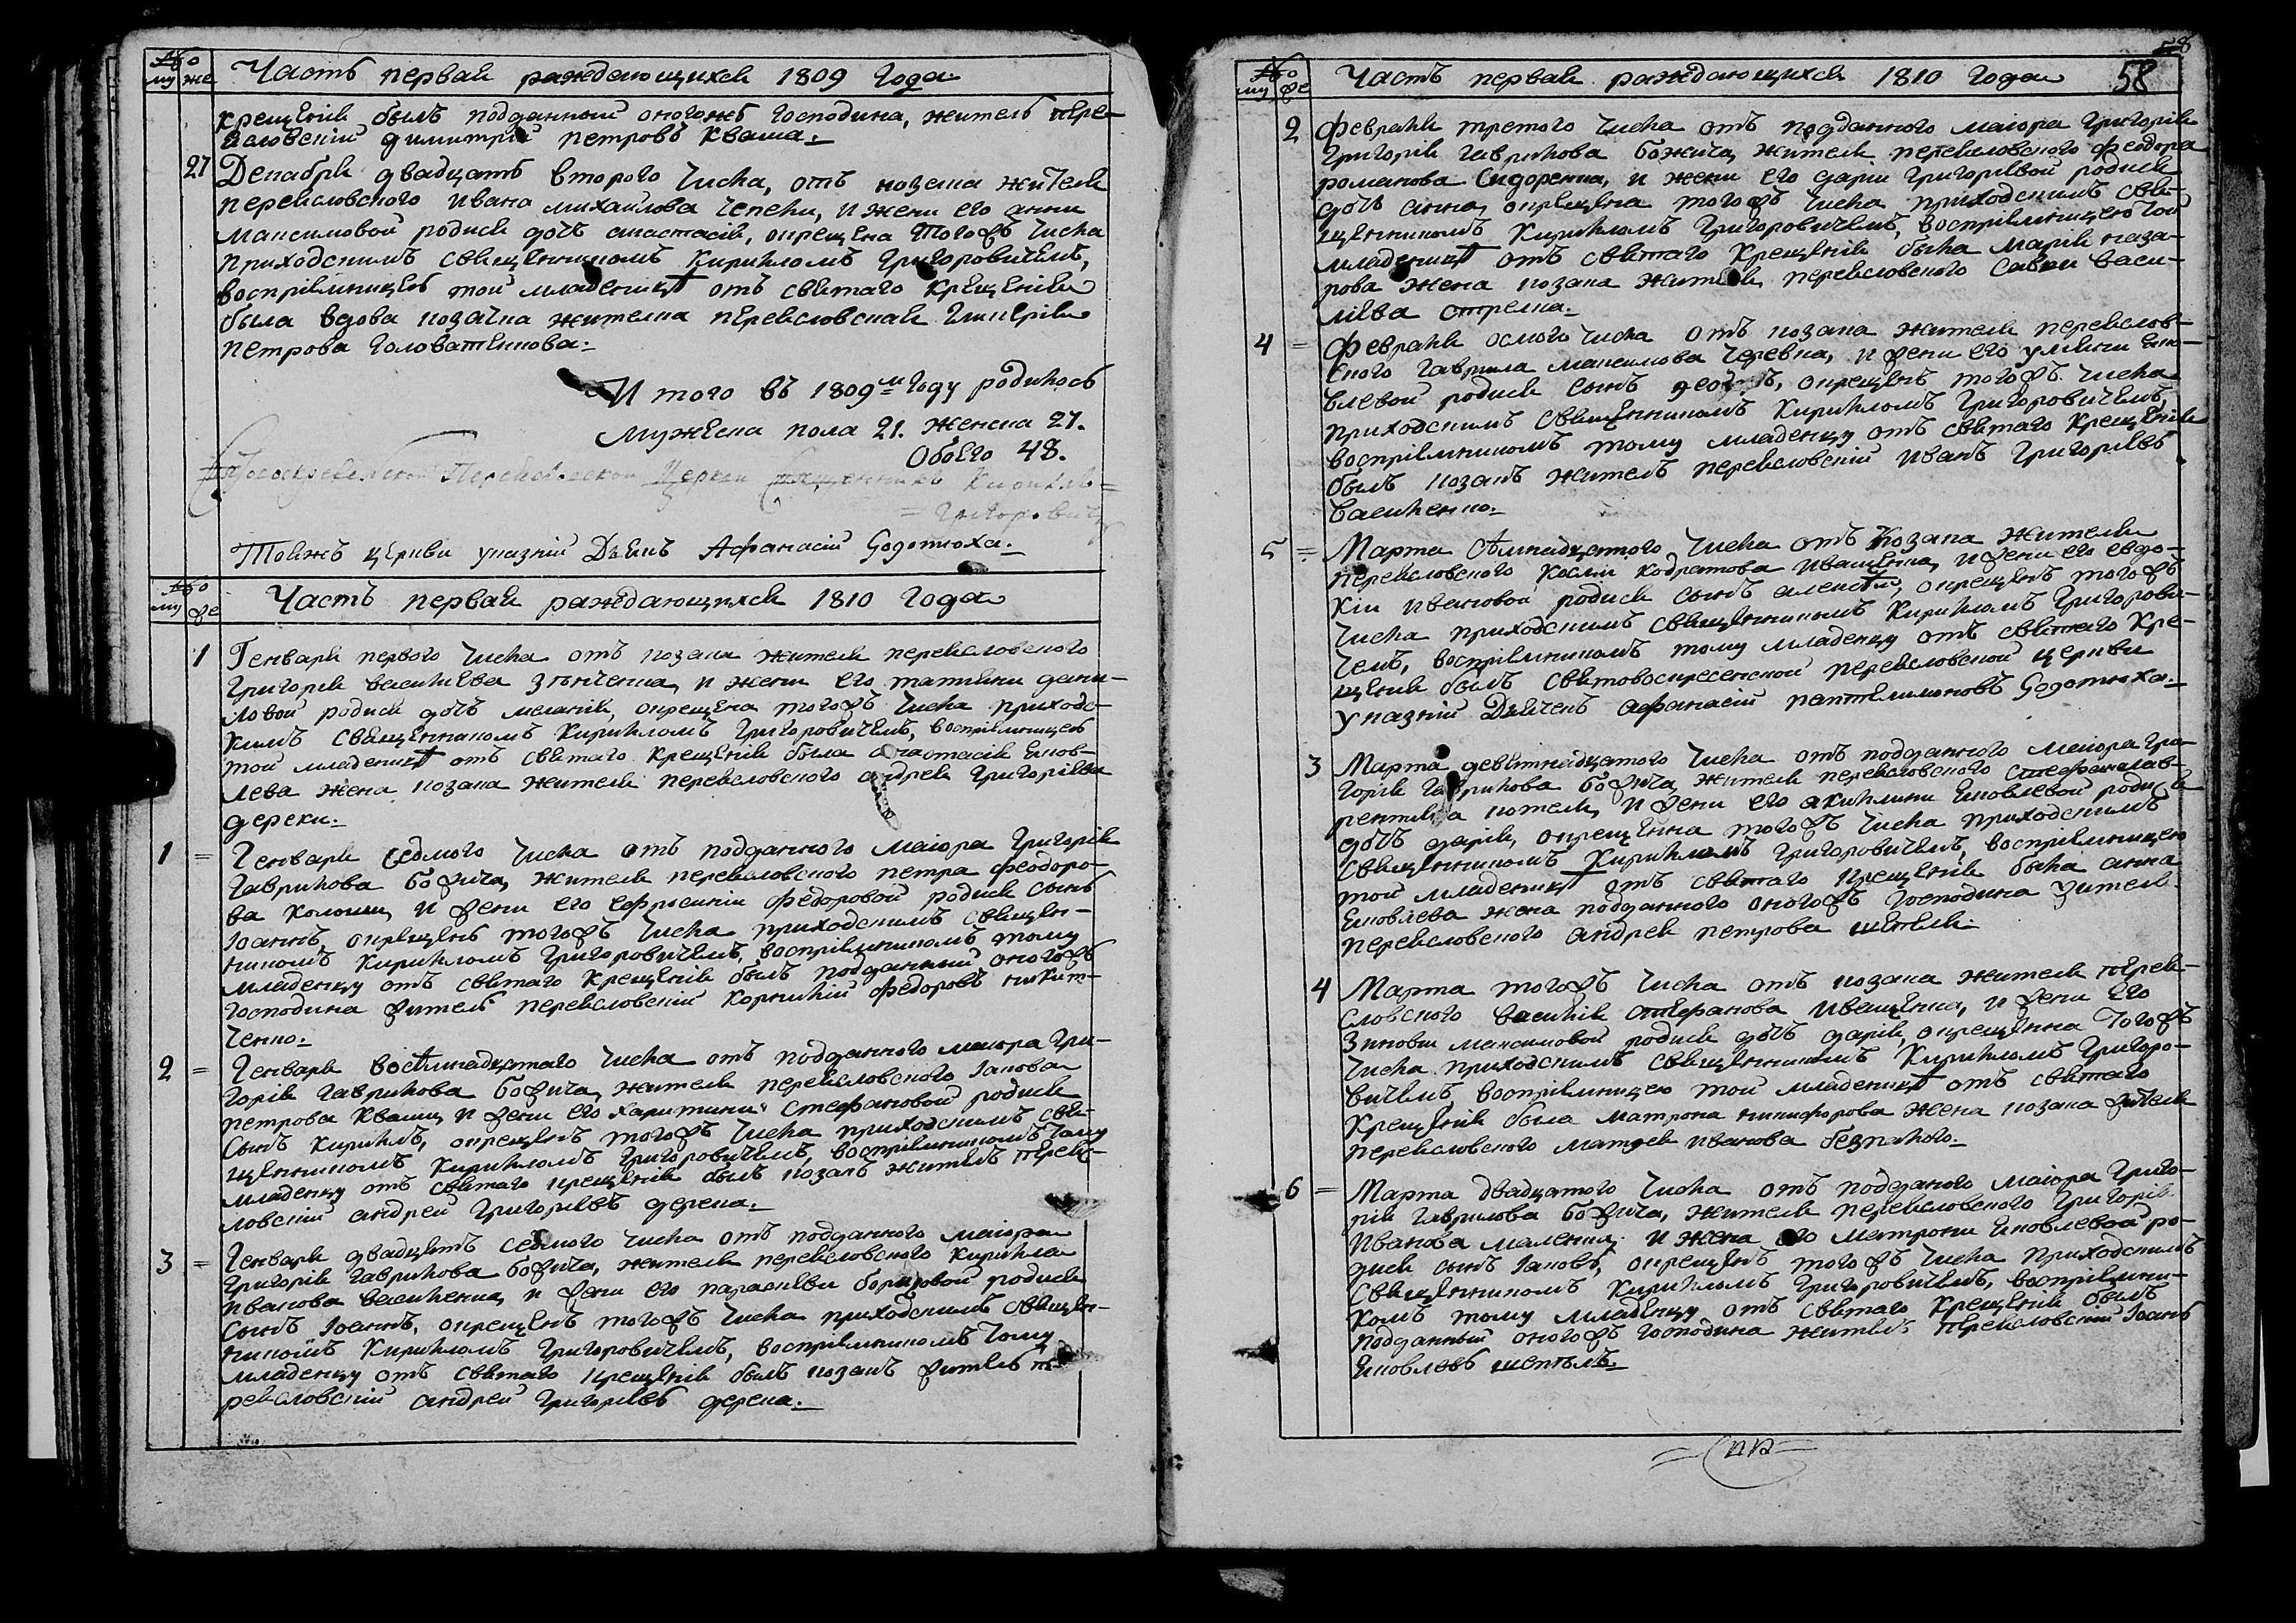 №
му же Часть первая раждающихся 1809 года
крещенія былъ подданный оногожъ господина, житель пере-
яславскій димитрій петровъ Кваша.
27 Декабря двадцать второго числа, отъ козака жителя
переясловского Ивана михайлова Чепеги, и жени его анни
максимовой родися дочь анастасія, окрещена тогожъ числа
приходскимъ священникомъ Кирилломъ Григоровичемъ,
воспріемницею той младеницѣ отъ святаго крещенія
была вдова козачка жителка переясловская Гликерія
петрова Головатенкова.
И того въ 1809м году родилось
мужеска пола 21. женска 27.
Обоего 48.
Воскресенской Переясловской Церкви священникъ Кириллъ
Григоровичъ
Тояжъ церкви указній Дьякъ Афанасій Бодотюха.
№
му же Часть первая раждающихся 1810 года
1 Генваря первого числа отъ козака жителя переясловского
Григорія василиева Зѣнченка, и жени его татіяни дани-
ловой родися дочъ меланія, окрещена тогожъ числа приходс-
кимъ священникомъ Кирилломъ Григоровичемъ, воспріемницею
той младеницѣ отъ святаго крещенія была анастасія Яков-
лева жена козака жителя переясловского андрея Григоріева
дереки.
1 = Генваря седмого числа отъ подданного маіора Григорія
Гаврилова божича, жителя переясловского петра феодоро-
ва Колоши, и жени его ефросиніи федоровой родися сынъ
Іоаннъ, окрещенъ тогожъ числа приходскимъ священ-
никомъ Кирилломъ Григоровичемъ, воспріемникомъ тому
младенцу отъ святаго крещенія былъ подданный оногожъ
господина житель переясловскій Корнилій федоровъ никит-
ченко.
2 = Генваря восѣмнадцатаго числа отъ подданного маіора Гри-
горія Гаврилова божича, жителя переясловского Іакова
петрова Кваши, и жени его харитини Стефановой родися
Сынъ Кириллъ, окрещенъ тогожъ числа приходскимъ свя-
щенникомъ Кирилломъ Григоровичемъ, воспріемникомъ тому
младенцу отъ святаго крещенія былъ козакъ житель переяс-
ловскій андрей Григоріевъ дерека.
3 = Генваря двадцать седмого числа отъ подданного маіора
Григорія Гаврилова божича, жителя переясловского Кирила
Иванова василенка, и жени его параскевіи борисовой родися
Сынъ Іоаннъ, окрещенъ тогожъ числа приходскимъ священ-
никомъ Кирилломъ Григоровичемъ, воспріемникомъ тому
младенцу отъ святаго крещенія былъ козакъ житель пе-
реясловскій андрей Григоріевъ дерека.
58
№
му же Часть первая раждающихся 1810 года 58
2 Февраля третого числа отъ подданного маіора Григорія
Григорія Гаврилова божича, жителя переясловского феодора
романова Сидоренка, и жени его даріи Григоріевой родися
дочь анна, окрещена тогожъ числа приходскимъ свя-
щенникомъ Кирилломъ Григоровичемъ, воспріемницею той
младеницѣ отъ святаго крещенія была Марія наза-
рова жена козака жителя переясловского Савви васи-
ліева стрелка.
4 = Февраля осмого числа отъ козака жителя переяслов-
ского Гаврила максимова Черевка, и жени его улияни Яко-
влевой родися сынъ окрещенъ тогожъ числа
приходскимъ священникомъ Кирилломъ Григоровичемъ,
воспріемникомъ тому младенцу отъ святаго крещенія
былъ козакъ житель переясловскій иванъ Григоріевъ
василенко.
5 = Марта сѣмнадцятого числа отъ козака жителя
переясловского Косми кодратова иващенка, и жени его евдо-
кіи ивановой родися сынъ алексѣй, окрещенъ тогожъ
числа приходскимъ священникомъ Кирилломъ Григорови-
чемъ, воспріемникомъ тому младенцу отъ святаго кре-
щенія былъ святовоскресенской переясловской церкви
указній Дьячекъ афанасій пантелимоновъ Бодотюха.
3 Марта девятнадцятого числа отъ подданного маіора Гри-
горія Гаврилова божича, жителя переясловского стефана лав-
рентиева котеля, и жени его акилини Яковлевой родися
дочь дарія, окрещенна тогожъ числа приходскимъ
священникомъ Кирилломъ Григоровичемъ, воспріемницею
той младеницѣ отъ святаго крещенія была анна
Яковлева жена подданного оногожъ господина жителя
переясловского андрея петрова шепеля.
4 Марта тогожъ числа отъ козака жителя перея-
словского василія стефанова иващенка, и жени его
Зиновіи максимовой родися дочь дарія, окрещенна тогожъ
числа приходскимъ священникомъ Кирилломъ Григоро-
вичемъ, воспріемницею той младеницѣ отъ святаго
крещенія была матрона никифорова жена козака жителя
переясловского матфея иванова безпалого.
6 = Марта двадцятого числа отъ подданого маіора Григо-
рія Гаврилова божича, жителя переясловского Григорія
Иванова маленка, и жена его Матрони Яковлевой ро-
дися сынъ Іаковъ, окрещенъ тогожъ числа приходскимъ
священникомъ Кирилломъ Григоровичемъ, воспріемни-
комъ тому младенцу отъ святаго крещенія былъ
подданный оногожъ господина житель переясловскій Іоанъ
Яковлевъ шепель.